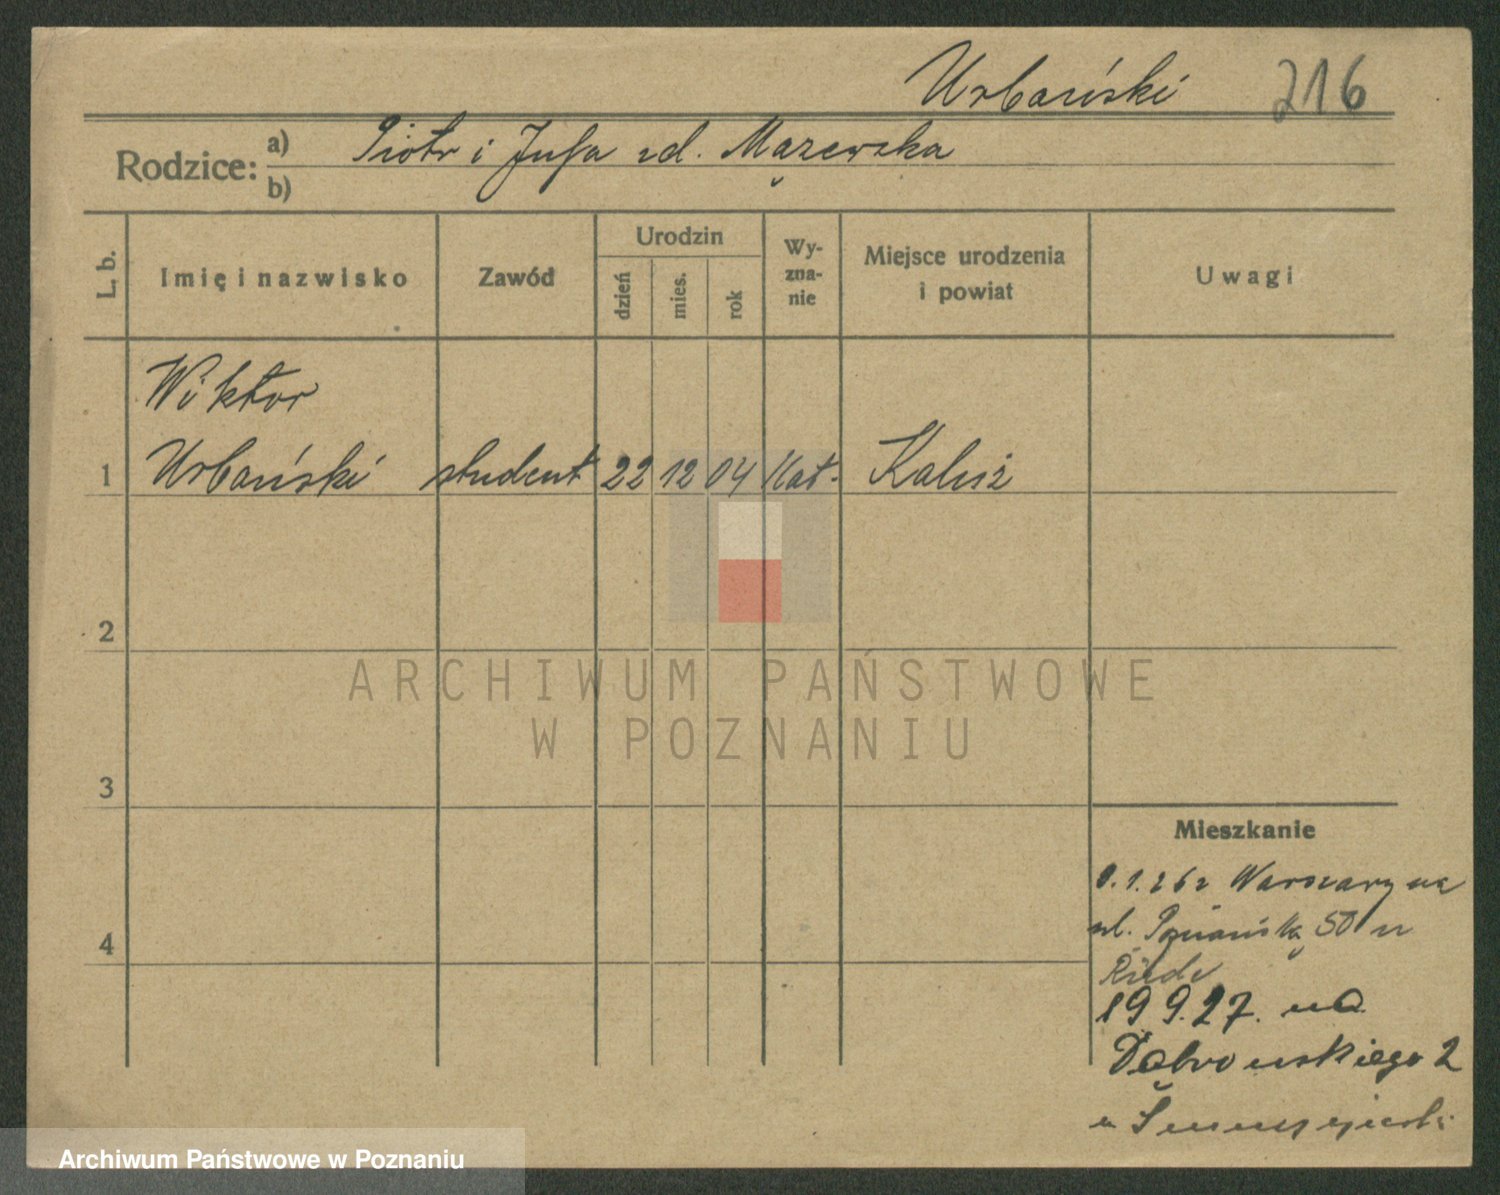 Urbański 216
Rodzice: a) Piotr i Jufa zd. Mązewska
b)
L. b.
Imię i nazwisko
Zawód
Urodzin
dzień
mies.
rok
Wy-
zna-
nie
Miejsce urodzenia
i powiat
Uwagi
Wiktor
1 Urbański student 22 12 04 Kat. Kalisz
2
ARCHIWUM PAŃSTWOWE
W POZNANIU
3
4
Mieszkanie
1.26 z Warszawy na
ul. Poznańską 50 u
19 9.27. na
Dąbrowskiego 2
u
Archiwum Państwowe w Poznaniu